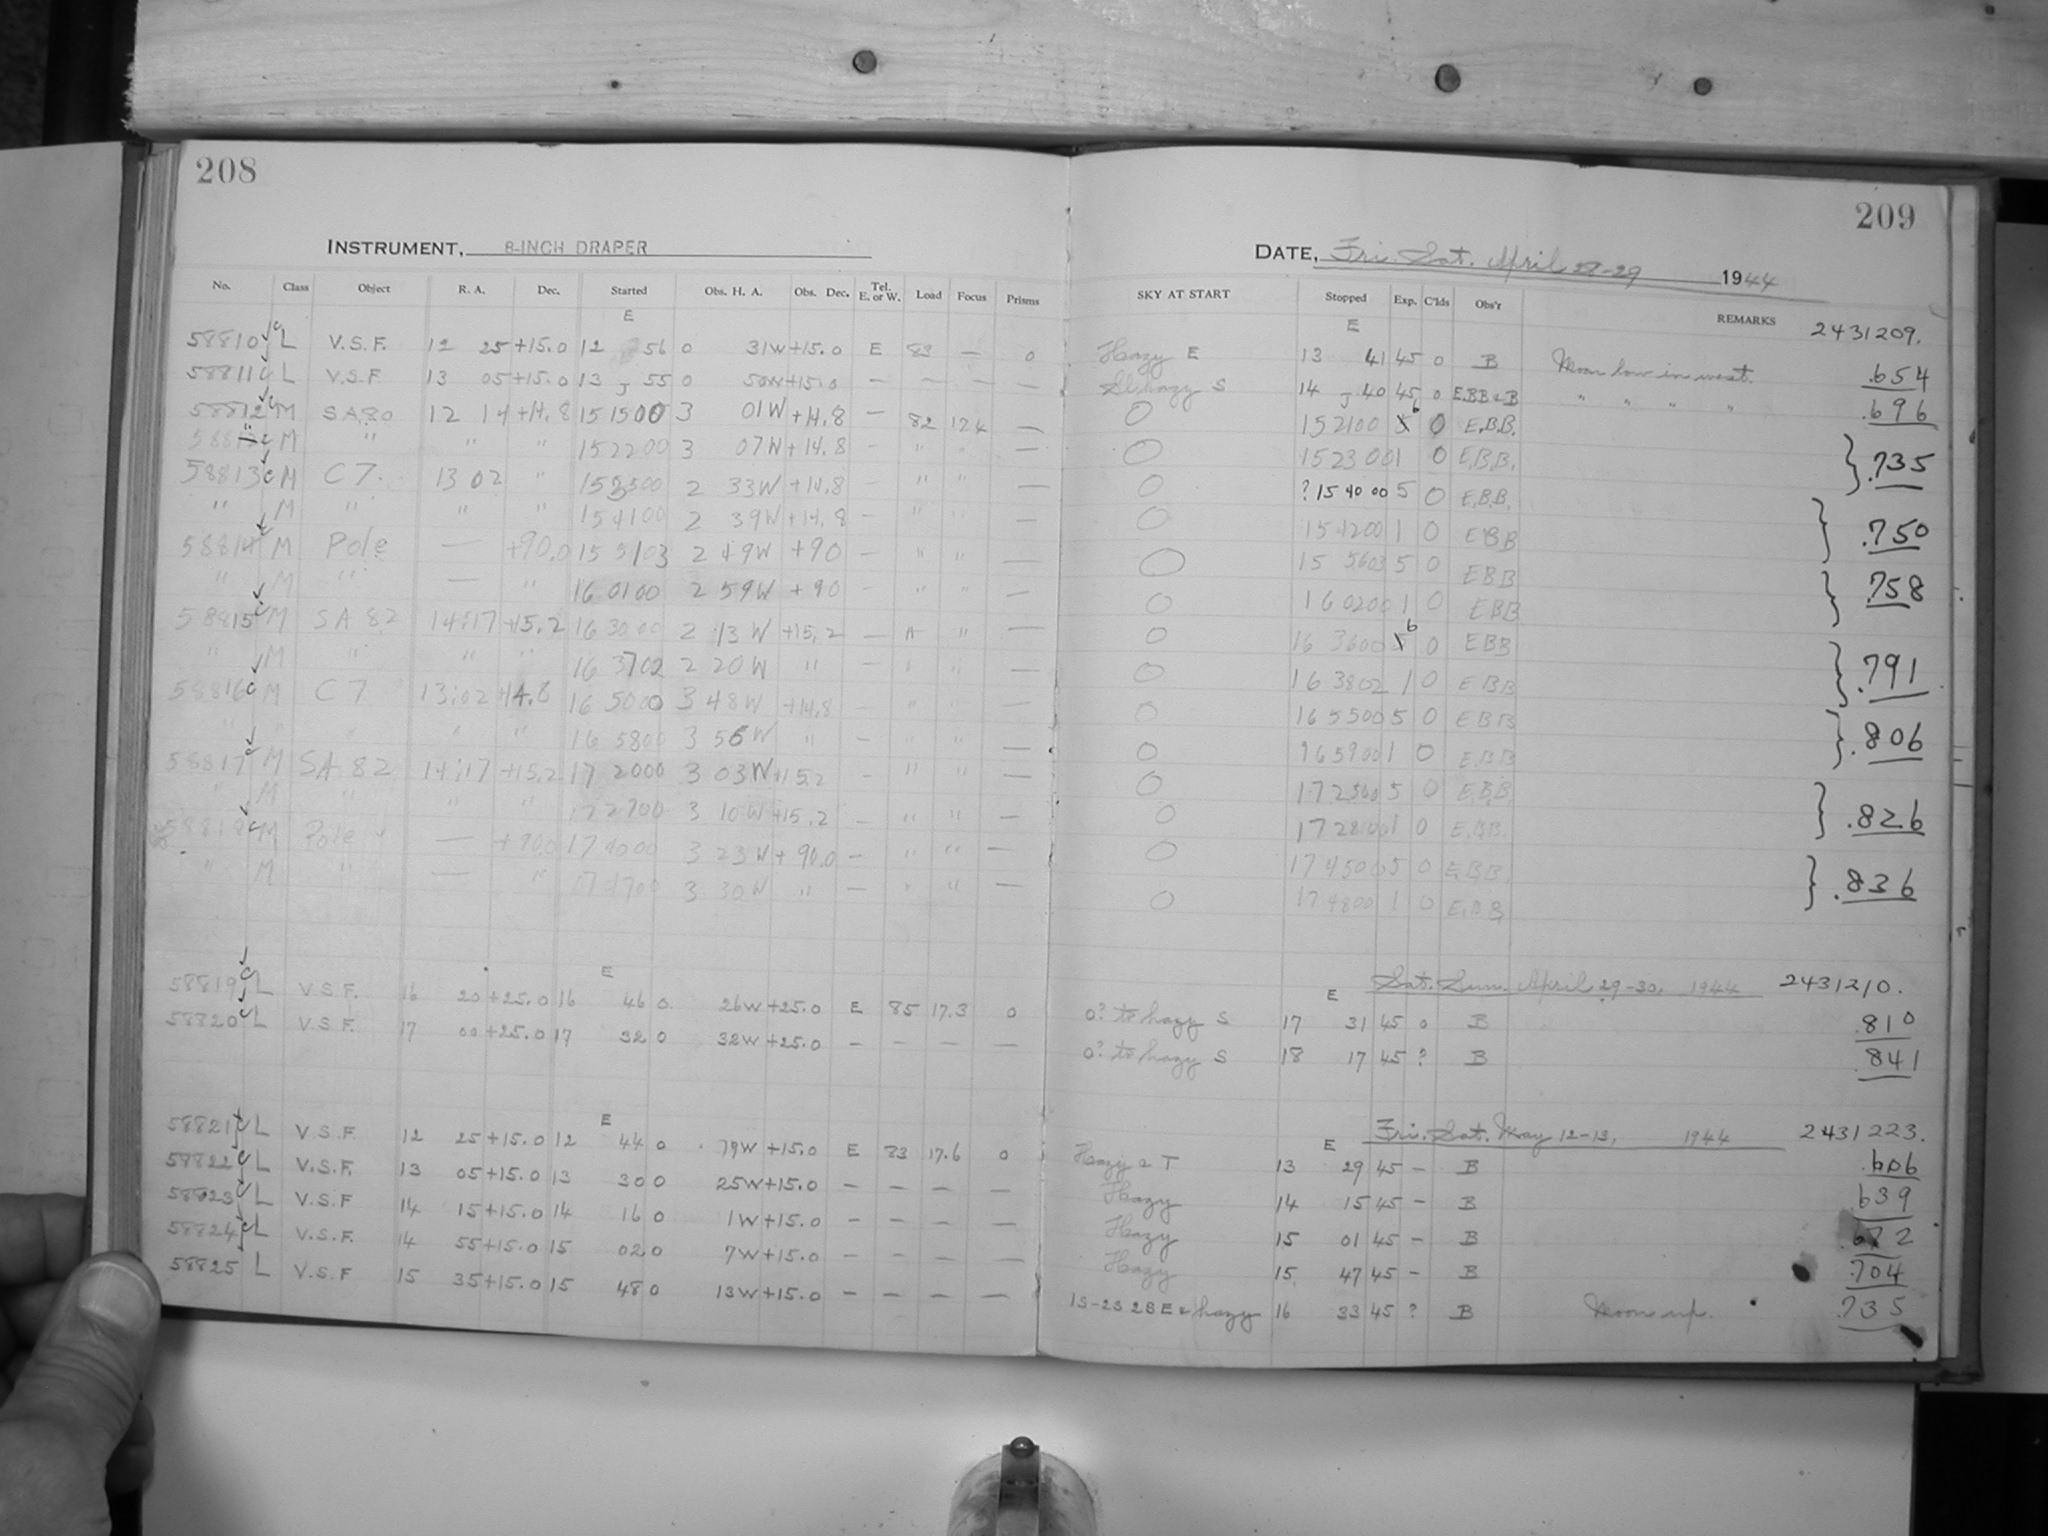 208
209
INSTRUMENT, 8-INCH DRAPER
DATE, Fri. Sat. April 28-29 1944
No. Class Object R. A. Dec. Started Obs. H. A. Obs. Dec. Tel. E. or W. Load Focus Prisms SKY AT START Stopped Exp. C'lds Obs'r REMARKS 2431209.
E E
58810 L V.S.F. 12 25 +15.0 12 56 0 31W +15.0 E 83 — 0 Hazy E 13 41 45 0 B Moon low in west. .654
58811 L V.S.F 13 05 +15.0 13 55 0 50W +15.0 — — — — hazy S 14 40 45 0 E.BB & B " " " " .696
58812 M SA80 12 14 +14.8 15 15 00 3 01W +14.8 — 82 174 — O 15 21 00 6 0 E.B.B.
M " " " 15 22 00 3 07W +14.8 — " " — O 15 23 00 1 0 E.B.B. } .735
58813 M C 7. 13 02 " 15 35 00 2 33W +14.8 — " " — O ? 15 40 00 5 0 E.B.B.
" M " " " 15 41 00 2 39W +14.8 — " " — O 15 42 00 1 0 EBB } .750
58814 M Pole — +90.0 15 51 03 2 49W +90 — " " — O 15 56 03 5 0 EBB
" M " — " 16 01 00 2 59W +90 — " " — O 16 02 00 1 0 EBB } .758
58815 M SA 82 14:17 +15.2 16 30 00 2 13W +15.2 — " " — O 16 36 00 6 0 EBB
" M " " " 16 37 02 2 20W " — " " — O 16 38 02 1 0 EBB } .791
58816 M C 7 13:02 +14.8 16 50 00 3 48W +14.8 — " " — O 16 55 00 5 0 EBB
" " " " " 16 58 00 3 56W " — " " — O 16 59 00 1 0 EBB } .806
58817 M SA 82 14:17 +15.2 17 20 00 3 03W +15.2 — " " — O 17 25 00 5 0 E.B.B.
" M " " " 17 27 00 3 10W +15.2 — " " — O 17 28 00 1 0 E.B.B. } .826
58818 M Pole — +90.0 17 40 00 3 23W +90.0 — " " — O 17 45 00 5 0 E.B.B.
" M " — " 17 47 00 3 30W " — " " — O 17 48 00 1 0 E.B.B. } .836
E E Sat. Sun. April 29-30, 1944 2431210.
58819 L V.S.F. 16 20 +25.0 16 46 0 26W +25.0 E 85 17.3 0 0? to hazy S 17 31 45 0 B .810
58820 L V.S.F. 17 00 +25.0 17 32 0 32W +25.0 — — — — 0? to hazy S 18 17 45 ? B .841
E E Fri. Sat. May 12-13, 1944 2431223.
58821 L V.S.F. 12 25 +15.0 12 44 0 19W +15.0 E 83 17.6 0 Hazy & T 13 29 45 – B .606
58822 L V.S.F. 13 05 +15.0 13 30 0 25W +15.0 — — — — Hazy 14 15 45 – B .639
58823 L V.S.F 14 15 +15.0 14 16 0 1W +15.0 — — — — Hazy 15 01 45 – B .672
58824 L V.S.F. 14 55 +15.0 15 02 0 7W +15.0 — — — — Hazy 15 47 45 – B .704
58825 L V.S.F 15 35 +15.0 15 48 0 13W +15.0 — — — — 1S-2S 2SE & hazy 16 33 45 ? B Moon up. .735